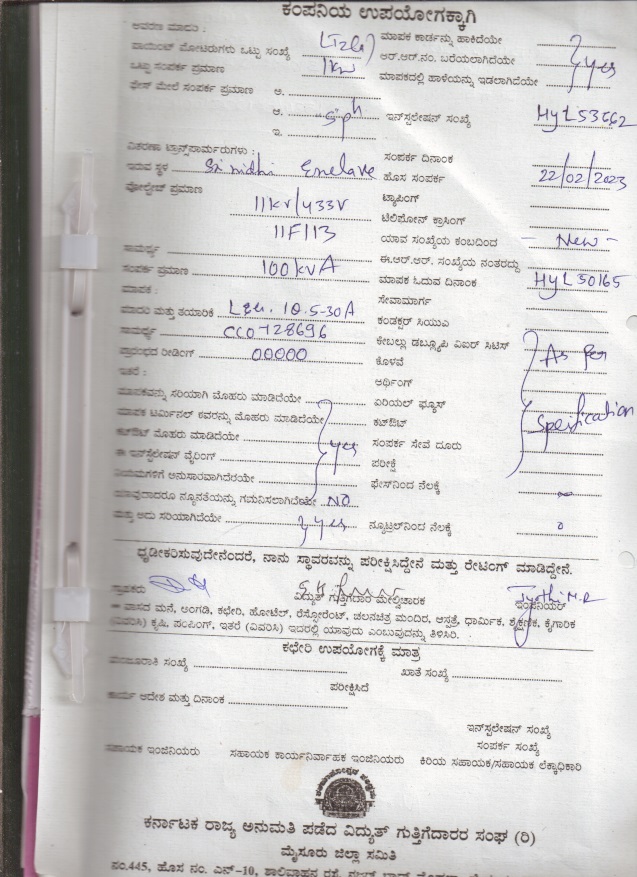 ಕಂಪನಿಯ ಉಪಯೋಗಕ್ಕಾಗಿ
ಆವರಣ ಮಾದರಿ : Lizli
ಪಾಯಿಂಟ್ ಮೋಟರುಗಳು ಒಟ್ಟು ಸಂಖ್ಯೆ
ಒಟ್ಟು ಸಂಪರ್ಕ ಪ್ರಮಾಣ 1kw
ಫೇಸ್ ಮೇಲೆ ಸಂಪರ್ಕ ಪ್ರಮಾಣ ಅ.
ಆ. S/ph
ಇ.
ವಿತರಣಾ ಟ್ರಾನ್ಸ್‌ಫಾರ್ಮರುಗಳು :
ಇರುವ ಸ್ಥಳ Srinidhi Enclave
ವೋಲ್ಟೇಜ್ ಪ್ರಮಾಣ 11kv/433v
11F113
ಸಾಮರ್ಥ್ಯ
ಸಂಪರ್ಕ ಪ್ರಮಾಣ 100kvA
ಮಾಪಕ :
ಮಾದರಿ ಮತ್ತು ತಯಾರಿಕೆ L&G. 1Q.5-30A
ಸಾಮರ್ಥ್ಯ CC0728696
ಪ್ರಾರಂಭದ ರೀಡಿಂಗ್ 00000
ಇತರೆ :
ಮಾಪಕವನ್ನು ಸರಿಯಾಗಿ ಮೊಹರು ಮಾಡಿದೆಯೇ
ಮಾಪಕ ಟರ್ಮಿನಲ್ ಕವರನ್ನು ಮೊಹರು ಮಾಡಿದೆಯೇ
ಕಟ್‌ಔಟ್ ಮೊಹರು ಮಾಡಿದೆಯೇ yes
ಈ ಇನ್‌ಸ್ಟಲೇಷನ್ ವೈರಿಂಗ್
ನಿಯಮಗಳಿಗೆ ಅನುಸಾರವಾಗಿದೆಯೇ
ಯಾವುದಾದರೂ ನ್ಯೂನತೆಯನ್ನು ಗಮನಿಸಲಾಗಿದೆಯೇ NO
ಮತ್ತು ಅದು ಸರಿಯಾಗಿದೆಯೇ yes
ಮಾಪಕ ಕಾರ್ಡನ್ನು ಹಾಕಿದೆಯೇ
ಆರ್.ಆರ್.ನಂ. ಬರೆಯಲಾಗಿದೆಯೇ yes
ಮಾಪಕದಲ್ಲಿ ಹಾಳೆಯನ್ನು ಇಡಲಾಗಿದೆಯೇ
ಇನ್‌ಸ್ಟಲೇಷನ್ ಸಂಖ್ಯೆ HYL53662
ಸಂಪರ್ಕ ದಿನಾಂಕ
ಹೊಸ ಸಂಪರ್ಕ 22/02/2023
ಟ್ಯಾಪಿಂಗ್
ಟೆಲಿಫೋನ್ ಕ್ರಾಸಿಂಗ್
ಯಾವ ಸಂಖ್ಯೆಯ ಕಂಬದಿಂದ - New -
ಈ.ಆರ್.ಆರ್. ಸಂಖ್ಯೆಯ ನಂತರದ್ದು
ಮಾಪಕ ಓದುವ ದಿನಾಂಕ HYL50165
ಸೇವಾಮಾರ್ಗ
ಕಂಡಕ್ಟರ್ ಸಿಯುಎ
ಕೇಬಲ್ಲು ಡಬ್ಲ್ಯೂಪಿ ಎಐರ್ ಸಿಟಿಸ್
ಕೊಳವೆ As per
ಅರ್ಥಿಂಗ್
ಏರಿಯಲ್ ಫ್ಯೂಸ್
ಕಟ್‌ಔಟ್ Specification
ಸಂಪರ್ಕ ಸೇವೆ ದೂರು
ಪರೀಕ್ಷೆ
ಫೇಸ್‌ನಿಂದ ನೆಲಕ್ಕೆ ∞
ನ್ಯೂಟ್ರಲ್‌ನಿಂದ ನೆಲಕ್ಕೆ 0
ಧೃಡೀಕರಿಸುವುದೇನೆಂದರೆ, ನಾನು ಸ್ಥಾವರವನ್ನು ಪರೀಕ್ಷಿಸಿದ್ದೇನೆ ಮತ್ತು ರೇಟಿಂಗ್ ಮಾಡಿದ್ದೇನೆ.
Jyothi M.R
ಗ್ರಾಹಕರು ವಿದ್ಯುತ್ ಗುತ್ತಿಗೆದಾರ ಮೇಲ್ವಿಚಾರಕ ಇಂಜಿನಿಯರ್
ವಾಸದ ಮನೆ, ಅಂಗಡಿ, ಕಛೇರಿ, ಹೋಟೆಲ್, ರೆಸ್ಟೋರೆಂಟ್, ಚಲನಚಿತ್ರ ಮಂದಿರ, ಆಸ್ಪತ್ರೆ, ಧಾರ್ಮಿಕ, ಶೈಕ್ಷಣಿಕ, ಕೈಗಾರಿಕ
(ವಿವರಿಸಿ) ಕೃಷಿ, ಪಂಪಿಂಗ್, ಇತರೆ (ವಿವರಿಸಿ) ಇದರಲ್ಲಿ ಯಾವುದು ಎಂಬುವುದನ್ನು ತಿಳಿಸಿರಿ.
ಕಛೇರಿ ಉಪಯೋಗಕ್ಕೆ ಮಾತ್ರ
ಮಂಜೂರಾತಿ ಸಂಖ್ಯೆ ಖಾತೆ ಸಂಖ್ಯೆ
ಪರೀಕ್ಷಿಸಿದೆ
ಕಾರ್ಯ ಆದೇಶ ಮತ್ತು ದಿನಾಂಕ
ಇನ್‌ಸ್ಟಲೇಷನ್ ಸಂಖ್ಯೆ
ಸಂಪರ್ಕ ಸಂಖ್ಯೆ
ಸಹಾಯಕ ಇಂಜಿನಿಯರು ಸಹಾಯಕ ಕಾರ್ಯನಿರ್ವಾಹಕ ಇಂಜಿನಿಯರು ಕಿರಿಯ ಸಹಾಯಕ/ಸಹಾಯಕ ಲೆಕ್ಕಾಧಿಕಾರಿ
ಕರ್ನಾಟಕ ರಾಜ್ಯ ಅನುಮತಿ ಪಡೆದ ವಿದ್ಯುತ್ ಗುತ್ತಿಗೆದಾರರ ಸಂಘ (ರಿ)
ಮೈಸೂರು ಜಿಲ್ಲಾ ಸಮಿತಿ
ನಂ.445, ಹೊಸ ನಂ. ಎನ್-10, ಶಾಲಿವಾಹನ ರಸ್ತೆ,